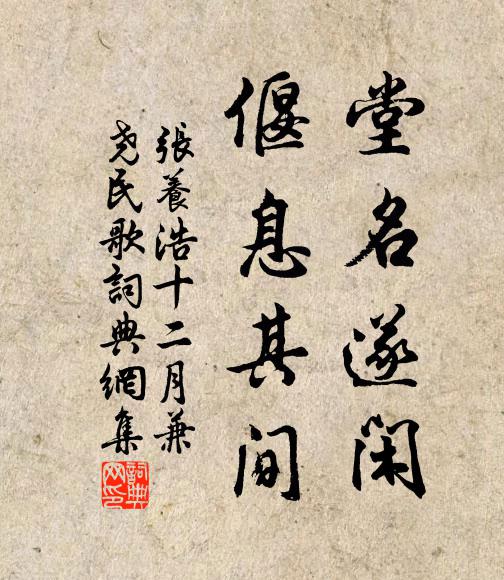 堂名遂闲
偃息其间
張養浩十二月兼
尧民歌詞典網集
詞典
网印